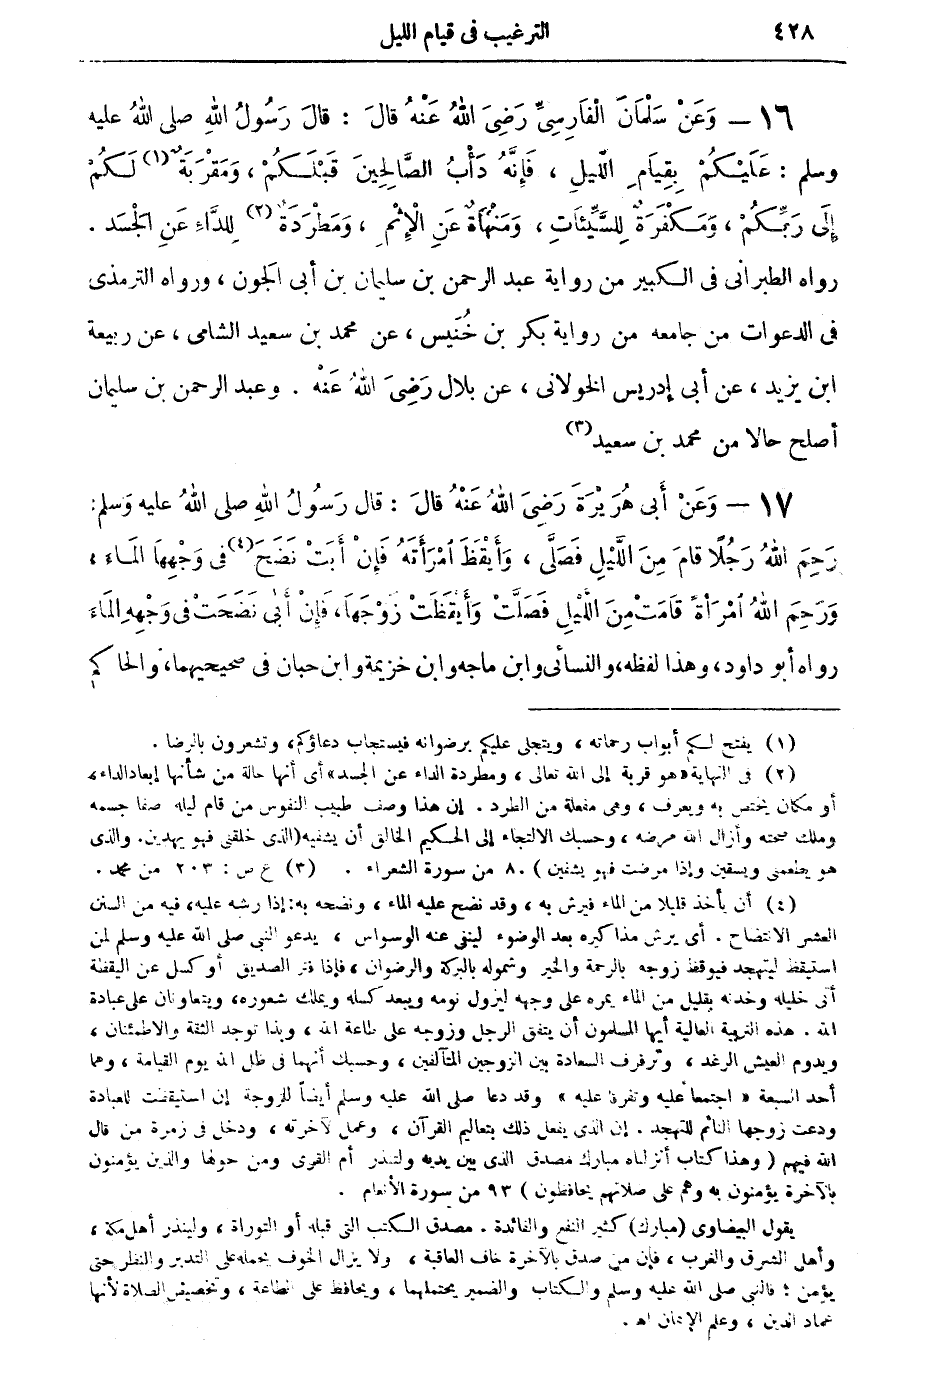 ٤٢٨
الترغيب فى قيام الليل
١٦ – وَعَنْ سَلْمَانَ الْفَارِسِىِّ رَضِىَ اللهُ عَنْهُ قالَ : قالَ رَسُولُ اللهِ صلى اللهُ عليه
وسلم : عَلَيْكُمْ بِقِيَامِ اللَّيلِ ، فَإِنَّهُ دَأْبُ الصَّالِحِينَ قَبْلَكُمْ ، وَمَقْرَبَةٌ (١) لَكُمْ
إِلَى رَبِّكُمْ ، وَمَكْفَرَةٌ لِلسَّيِّئَاتِ ، وَمَنْهَاةٌ عَنِ الْإِثْمِ ، وَمَطْرَدَةٌ (٢) لِلدَّاءِ عَنِ الْجَسَدِ .
رواه الطبرانى فى الكبير من رواية عبد الرحمن بن سليمان بن أبى الجون ، ورواه الترمذى
فى الدعوات من جامعه من رواية بكر بن خُنَيس ، عن محمد بن سعيد الشامى ، عن ربيعة
ابن يزيد ، عن أبى إدريس الخولانى ، عن بلال رَضِىَ اللهُ عَنْه . وعبد الرحمن بن سليمان
أصلح حالا من محمد بن سعيد (٣)
١٧ – وَعَنْ أبى هُرَيْرَةَ رَضِىَ اللهُ عَنْهُ قالَ : قال رَسُولُ اللهِ صلى اللهُ عليه وَسلم :
رَحِمَ اللهُ رَجُلًا قامَ مِنَ اللَّيْلِ فَصَلَّى ، وَأَيْقَظَ امْرَأَتَهُ فَإِنْ أَبَتْ نَضَحَ (٤) فى وَجْهِهَا المَاءَ ،
وَرَحِمَ اللهُ امْرَأَةً قَامَتْ مِنَ اللَّيْلِ فَصَلَّتْ وَأَيْقَظَتْ زَوْجَهَا، فَإِنْ أَبَى نَضَحَتْ فى وَجْهِهِ المَاءَ
رواه أبو داود، وهذا لفظه، والنسائى وابن ماجه وابن خزيمة وابن حبان فى صحيحيهما، والحاكم
(١) يفتح لكم أبواب رحماته ، ويتجلى عليكم برضوانه فيستجاب دعاؤكم، وتشعرون بالرضا .
(٢) فى النهاية «هو قربة إلى الله تعالى ، ومطردة الداء عن الجسد» أى أنها حالة من شأنها إبعاد الداء،
أو مكان يختص به ويعرف ، وهى مفعلة من الطرد . إن هذا وصف طبيب النفوس من قام ليله صفا جسمه
وملك صحته وأزال الله مرضه ، وحسبك الالتجاء إلى الحكيم الخالق أن يشفيه (الذى خلقنى فهو يهدين. والذى
هو يطعمنى ويسقين وإذا مرضت فهو يشفين ) ٨٠ من سورة الشعراء . (٣) ع ص : ٢٠٣ من محمد .
(٤) أن يأخذ قليلا من الماء فيرش به ، وقد نضح عليه الماء ، ونضحه به: إذا رشه عليه، فيه من السنن
العشر الانتضاح . أى يرش مذاكيره بعد الوضوء لينفى عنه الوسواس ، يدعو النبى صلى الله عليه وسلم لمن
استيقظ ليتهجد فيوقظ زوجه بالرحمة والخير وشموله بالبركة والرضوان ، فإذا فتر الصديق أو كسل عن اليقظة
أتى خليله وخدنه بقليل من الماء يمره على وجهه ليزول نومه ويبعد كسله ويملك شعوره، ويتعاونان على عبادة
الله . هذه التربية العالية أيها المسلمون أن يتفق الرجل وزوجه على طاعة الله ، وبذا توجد الثقة والاطمئنان ،
ويدوم العيش الرغد ، وترفرف السعادة بين الزوجين المتآلفين ، وحسبك أنهما فى ظل الله يوم القيامة ، وهما
أحد السبعة « اجتمعا عليه وتفرقا عليه » وقد دعا صلى الله عليه وسلم أيضاً للزوجة إن استيقظت للعبادة
ودعت زوجها النائم للتهجد . إن الذى يفعل ذلك يتعاليم القرآن ، وعمل لآخرته ، ودخل فى زمرة من قال
الله فيهم ( وهذا كتاب أنزلناه مبارك مصدق الذى بين يديه ولتنذر أم القرى ومن حولها والذين يؤمنون
بالآخرة يؤمنون به وهم على صلاتهم يحافظون ) ٩٣ من سورة الأنعام .
يقول البيضاوى (مبارك) كثير النفع والفائدة . مصدق الكتب التى قبله أو التوراة ، ولينذر أهل مكة ،
وأهل الشرق والغرب ، فإن من صدق بالآخرة خاف العاقبة ، ولا يزال الخوف يحمله على التدبر والنظر حتى
يؤمن ؛ فالنبى صلى الله عليه وسلم والكتاب والضمير يحتملهما ، ويحافظ على الطاعة ، وتخصيص الصلاة لأنها
عماد الدين ، وعلم الإيمان اه .